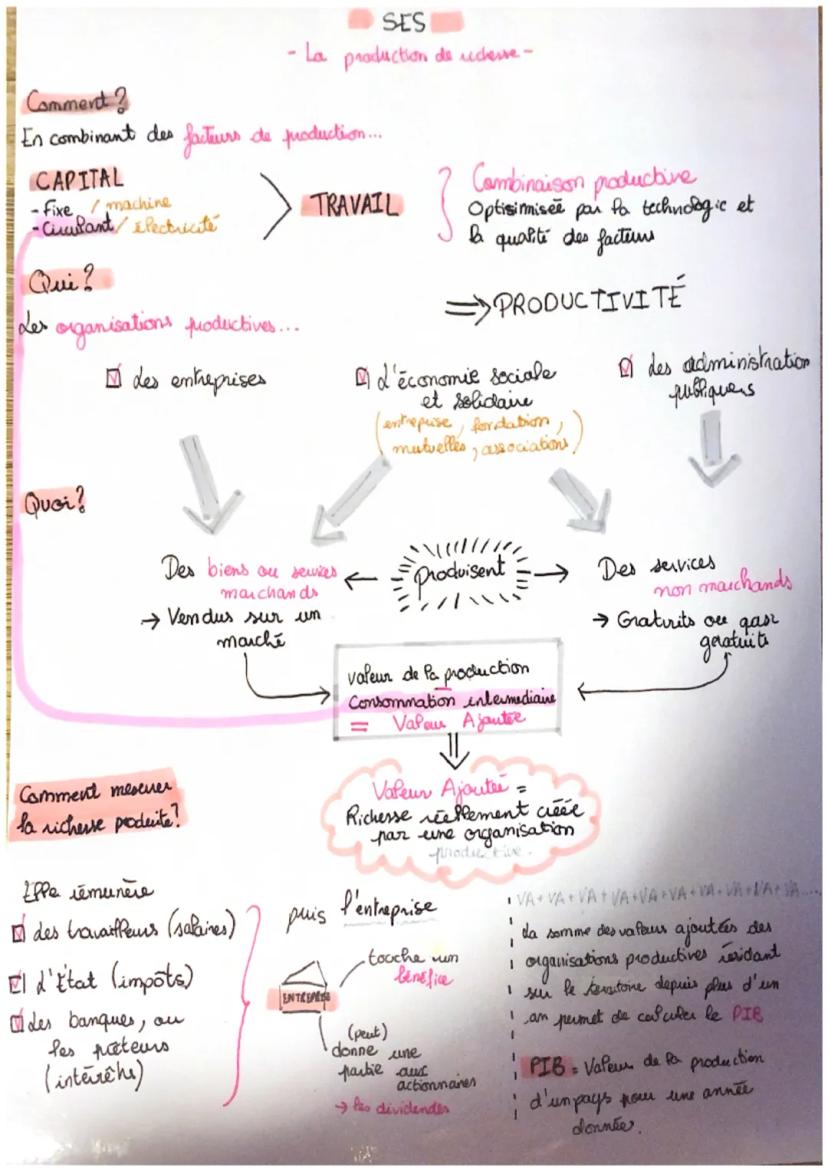 SES
- La production de richesse -
Comment?
En combinant des facteurs de production...
CAPITAL
- Fixe / machine
- Circulant / électricité
TRAVAIL
Combinaison productive
Optisimiseé par la technologie et
la qualité des facteurs
=> PRODUCTIVITÉ
Qui?
Les organisations productives...
des entreprises
d'économie sociale
et solidaire
(entreprise, fondation,
mutuelles, associations)
des administration
publiquers
Quoi?
Des biens ou services
marchands
→ Vendus sur un
marché
← produisent →
Des services
non marchands
→ Gratuits ou gasi
geratuits
valeur de la production
Consommation intermediaire
= Valeur Ajoutée
Valeur Ajoutée =
Richesse réellement créée
par une organisation
productive.
Comment mesurer
la richesse produite?
Elle rémunère
des travailleurs (salaires)
d'État (impôts)
des banques, ou
les prêteurs
(intérêhs)
puis l'entreprise
ENTREPRISE
touche un
bénéfice
(peut)
donne une
partie aux
actionnaires
→ les dividendes
VA+VA+VA+VA+VA+VA+VA+VA+VA+VA....
La somme des valeurs ajoutées des
organisations productives résidant
sur le territoire depuis plus d'un
an permet de calculer le PIB
PIB = Valeur de la production
d'un pays pour une année
donnée.